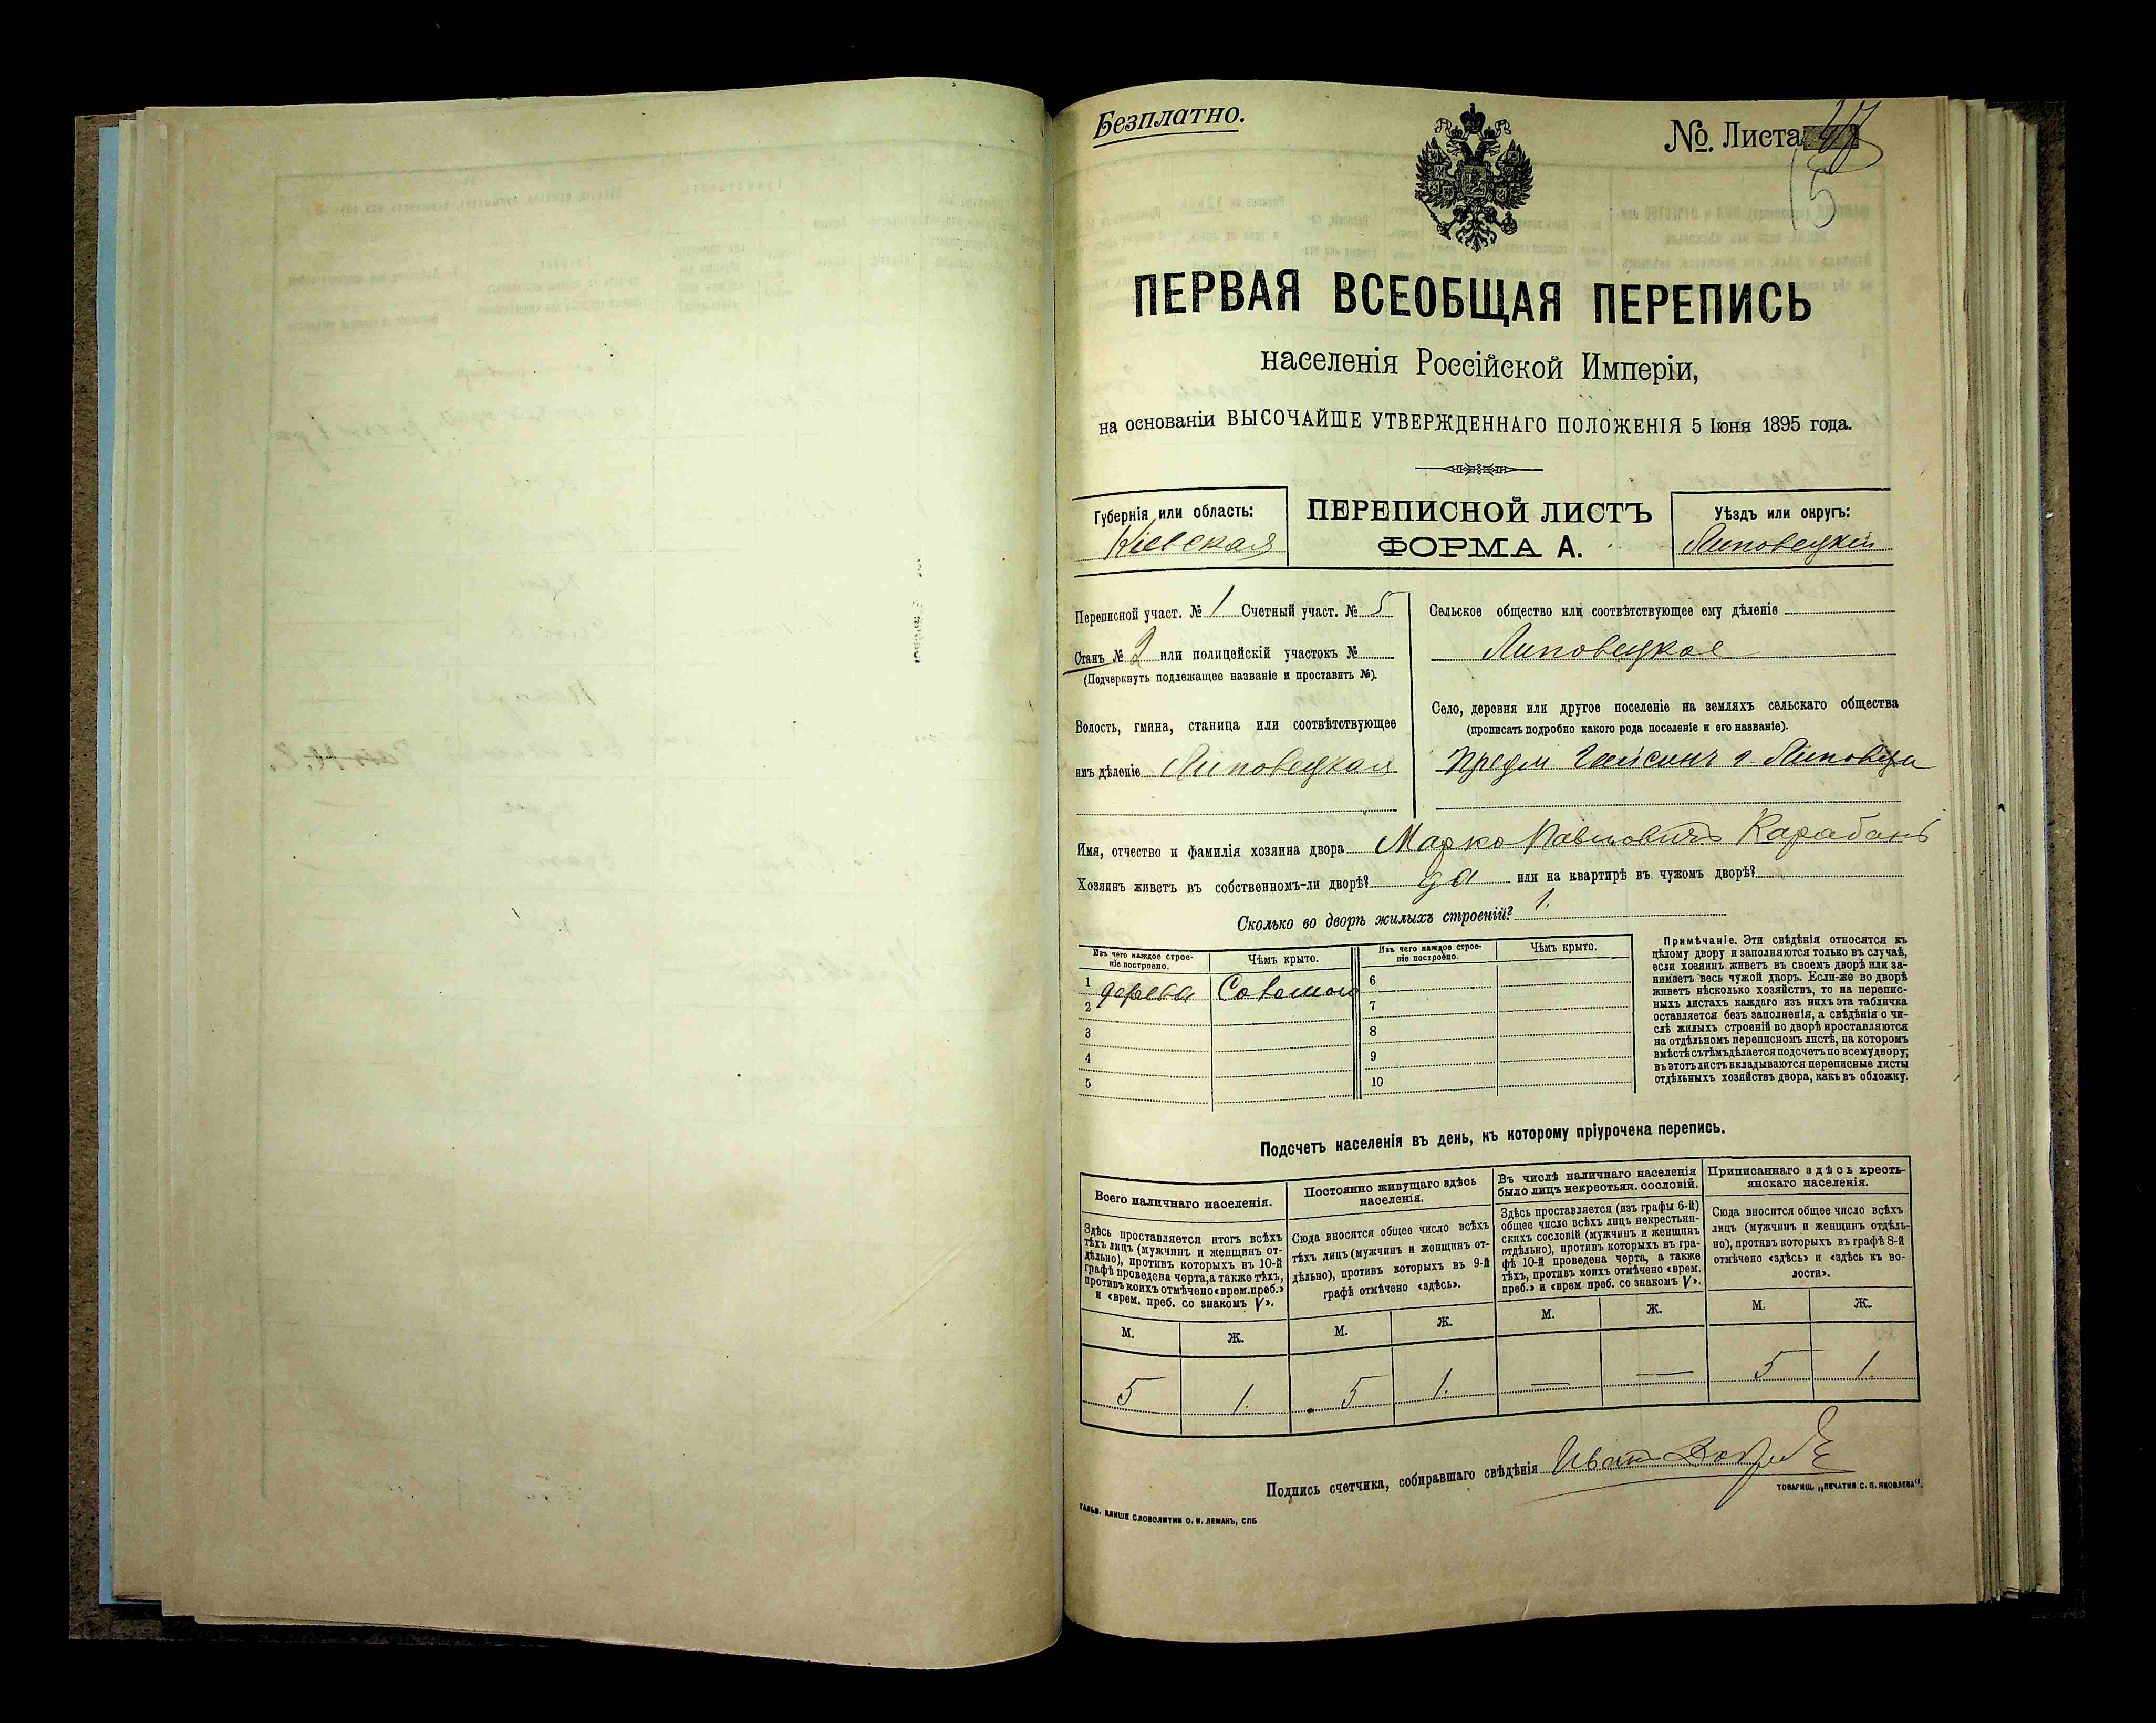 Безплатно.
№. Листа
15
ПЕРВАЯ ВСЕОБЩАЯ ПЕРЕПИСЬ
населенія Россійской Имперіи,
на основаніи ВЫСОЧАЙШЕ УТВЕРЖДЕННАГО ПОЛОЖЕНІЯ 5 Іюня 1895 года.
Губернія или область:
Кіевская
ПЕРЕПИСНОЙ ЛИСТЪ
ФОРМА А.
Уѣздъ или округъ:
Липовецкій
Переписной участ. № 1 Счетный участ. № 5
Станъ № 2 или полицейскій участокъ №
(Подчеркнуть подлежащее названіе и проставить №).
Волость, гмина, станица или соотвѣтствующее
имъ дѣленіе Липовецкая
Сельское общество или соотвѣтствующее ему дѣленіе
Липовецкое
Село, деревня или другое поселеніе на земляхъ сельскаго общества
(прописать подробно какого рода поселеніе и его названіе).
Предм. Гайсинъ г. Липовца
Имя, отчество и фамилія хозяина двора Марко Павловичъ Карабанъ
Хозяинъ живетъ въ собственномъ-ли дворѣ? да или на квартирѣ въ чужомъ дворѣ?
Сколько во дворѣ жилыхъ строеній? 1.
Изъ чего каждое строе-
ніе построено.
Чѣмъ крыто.
Изъ чего каждое строе-
ніе построено.
Чѣмъ крыто.
1 дерева Соломою
2
3
4
5
6
7
8
9
10
Примѣчаніе. Эти свѣдѣнія относятся къ
цѣлому двору и заполняются только въ случаѣ,
если хозяинъ живетъ въ своемъ дворѣ или за-
нимаетъ весь чужой дворъ. Если-же во дворѣ
живетъ нѣсколько хозяйствъ, то на перепис-
ныхъ листахъ каждаго изъ нихъ эта табличка
оставляется безъ заполненія, а свѣдѣнія о чи-
слѣ жилыхъ строеній во дворѣ проставляются
на отдѣльномъ переписномъ листѣ, на которомъ
вмѣстѣ съ тѣмъ дѣлается подсчетъ по всему двору;
въ этотъ листъ вкладываются переписные листы
отдѣльныхъ хозяйствъ двора, какъ въ обложку.
Подсчетъ населенія въ день, къ которому пріурочена перепись.
Всего наличнаго населенія.
Здѣсь проставляется итогъ всѣхъ
тѣхъ лицъ (мужчинъ и женщинъ от-
дѣльно), противъ которыхъ въ 10-й
графѣ проведена черта, а также тѣхъ,
противъ коихъ отмѣчено «врем. преб.»
и «врем. преб. со знакомъ V».
Постоянно живущаго здѣсь
населенія.
Сюда вносится общее число всѣхъ
тѣхъ лицъ (мужчинъ и женщинъ от-
дѣльно), противъ которыхъ въ 9-й
графѣ отмѣчено «здѣсь».
Въ числѣ наличнаго населенія
было лицъ некрестьян. сословій.
Здѣсь проставляется (изъ графы 6-й)
общее число всѣхъ лицъ некрестьян-
скихъ сословій (мужчинъ и женщинъ
отдѣльно), противъ которыхъ въ гра-
фѣ 10-й проведена черта, а также
тѣхъ, противъ коихъ отмѣчено «врем.
преб.» и «врем преб. со знакомъ V».
Приписаннаго здѣсь кресть-
янскаго населенія.
Сюда вносится общее число всѣхъ
лицъ (мужчинъ и женщинъ отдѣль-
но), противъ которыхъ въ графѣ 8-й
отмѣчено «здѣсь» и «здѣсь къ во-
лости».
М. Ж. М. Ж. М. Ж. М. Ж.
5 1. 5 1. — — 5 1.
Подпись счетчика, собиравшаго свѣдѣнія Иванъ
ГАЛЬВ. КЛИШЕ СЛОВОЛИТНИ О. И. ЛЕМАНЪ, СПБ
ТОВАРИЩ. „ПЕЧАТНЯ С. П. ЯКОВЛЕВА".